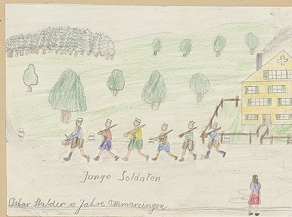 Junge Soldaten
Oskar Halder 12 Jahre Wimarzingen